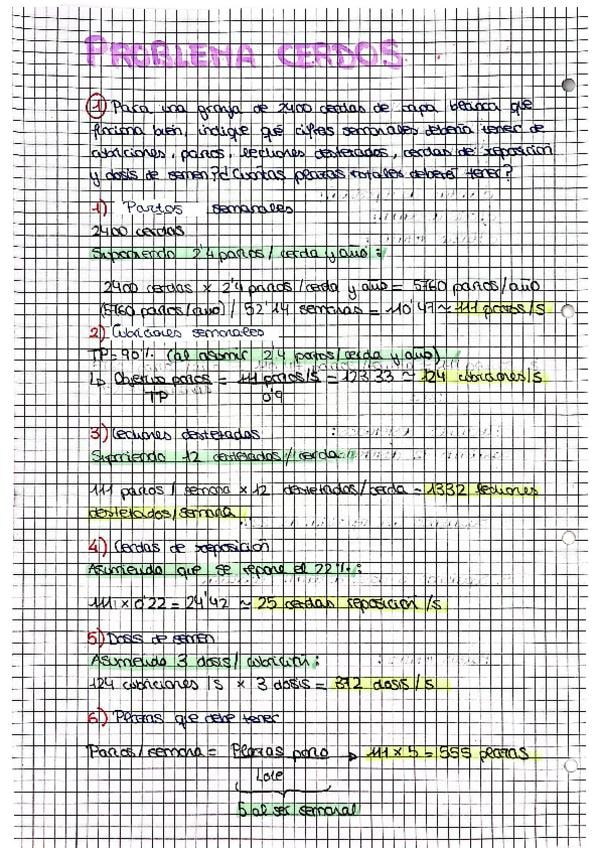 PROBLEMA CERDOS
1) Para una granja de 2400 cerdas de capa blanca que
funciona bien, indique qué cifras semanales debería tener de
cubriciones, partos, lechones destetados, cerdas de reposición
y dosis de semen? ¿Cuántas plazas totales deberá tener?
1) Partos semanales
2400 cerdas
Suponiendo 2'4 partos / cerda y año:
2400 cerdas x 2'4 partos / cerda y año = 5760 partos/año
(5760 partos/año) / 52'14 semanas = 110'47 ≈ 111 partos/s
2) Cubriciones semanales
TP = 90% (al asumir 2'4 partos/cerda y año)
↳ Objetivo partos / TP = 111 partos/s / 0'9 = 123'33 ≈ 124 cubriciones/s
3) Lechones destetados
Suponiendo 12 destetados / cerda:
111 partos / semana x 12 destetados/cerda = 1332 lechones
destetados/semana
4) Cerdas de reposición
Asumiendo que se repone el 22%:
111 x 0'22 = 24'42 ≈ 25 cerdas reposición /s
5) Dosis de semen
Asumiendo 3 dosis / cubrición:
124 cubriciones /s x 3 dosis = 372 dosis /s
6) Plazas que debe tener
Partos / semana = Plazas parto / Lote → 111 x 5 = 555 plazas
5 al ser semanal